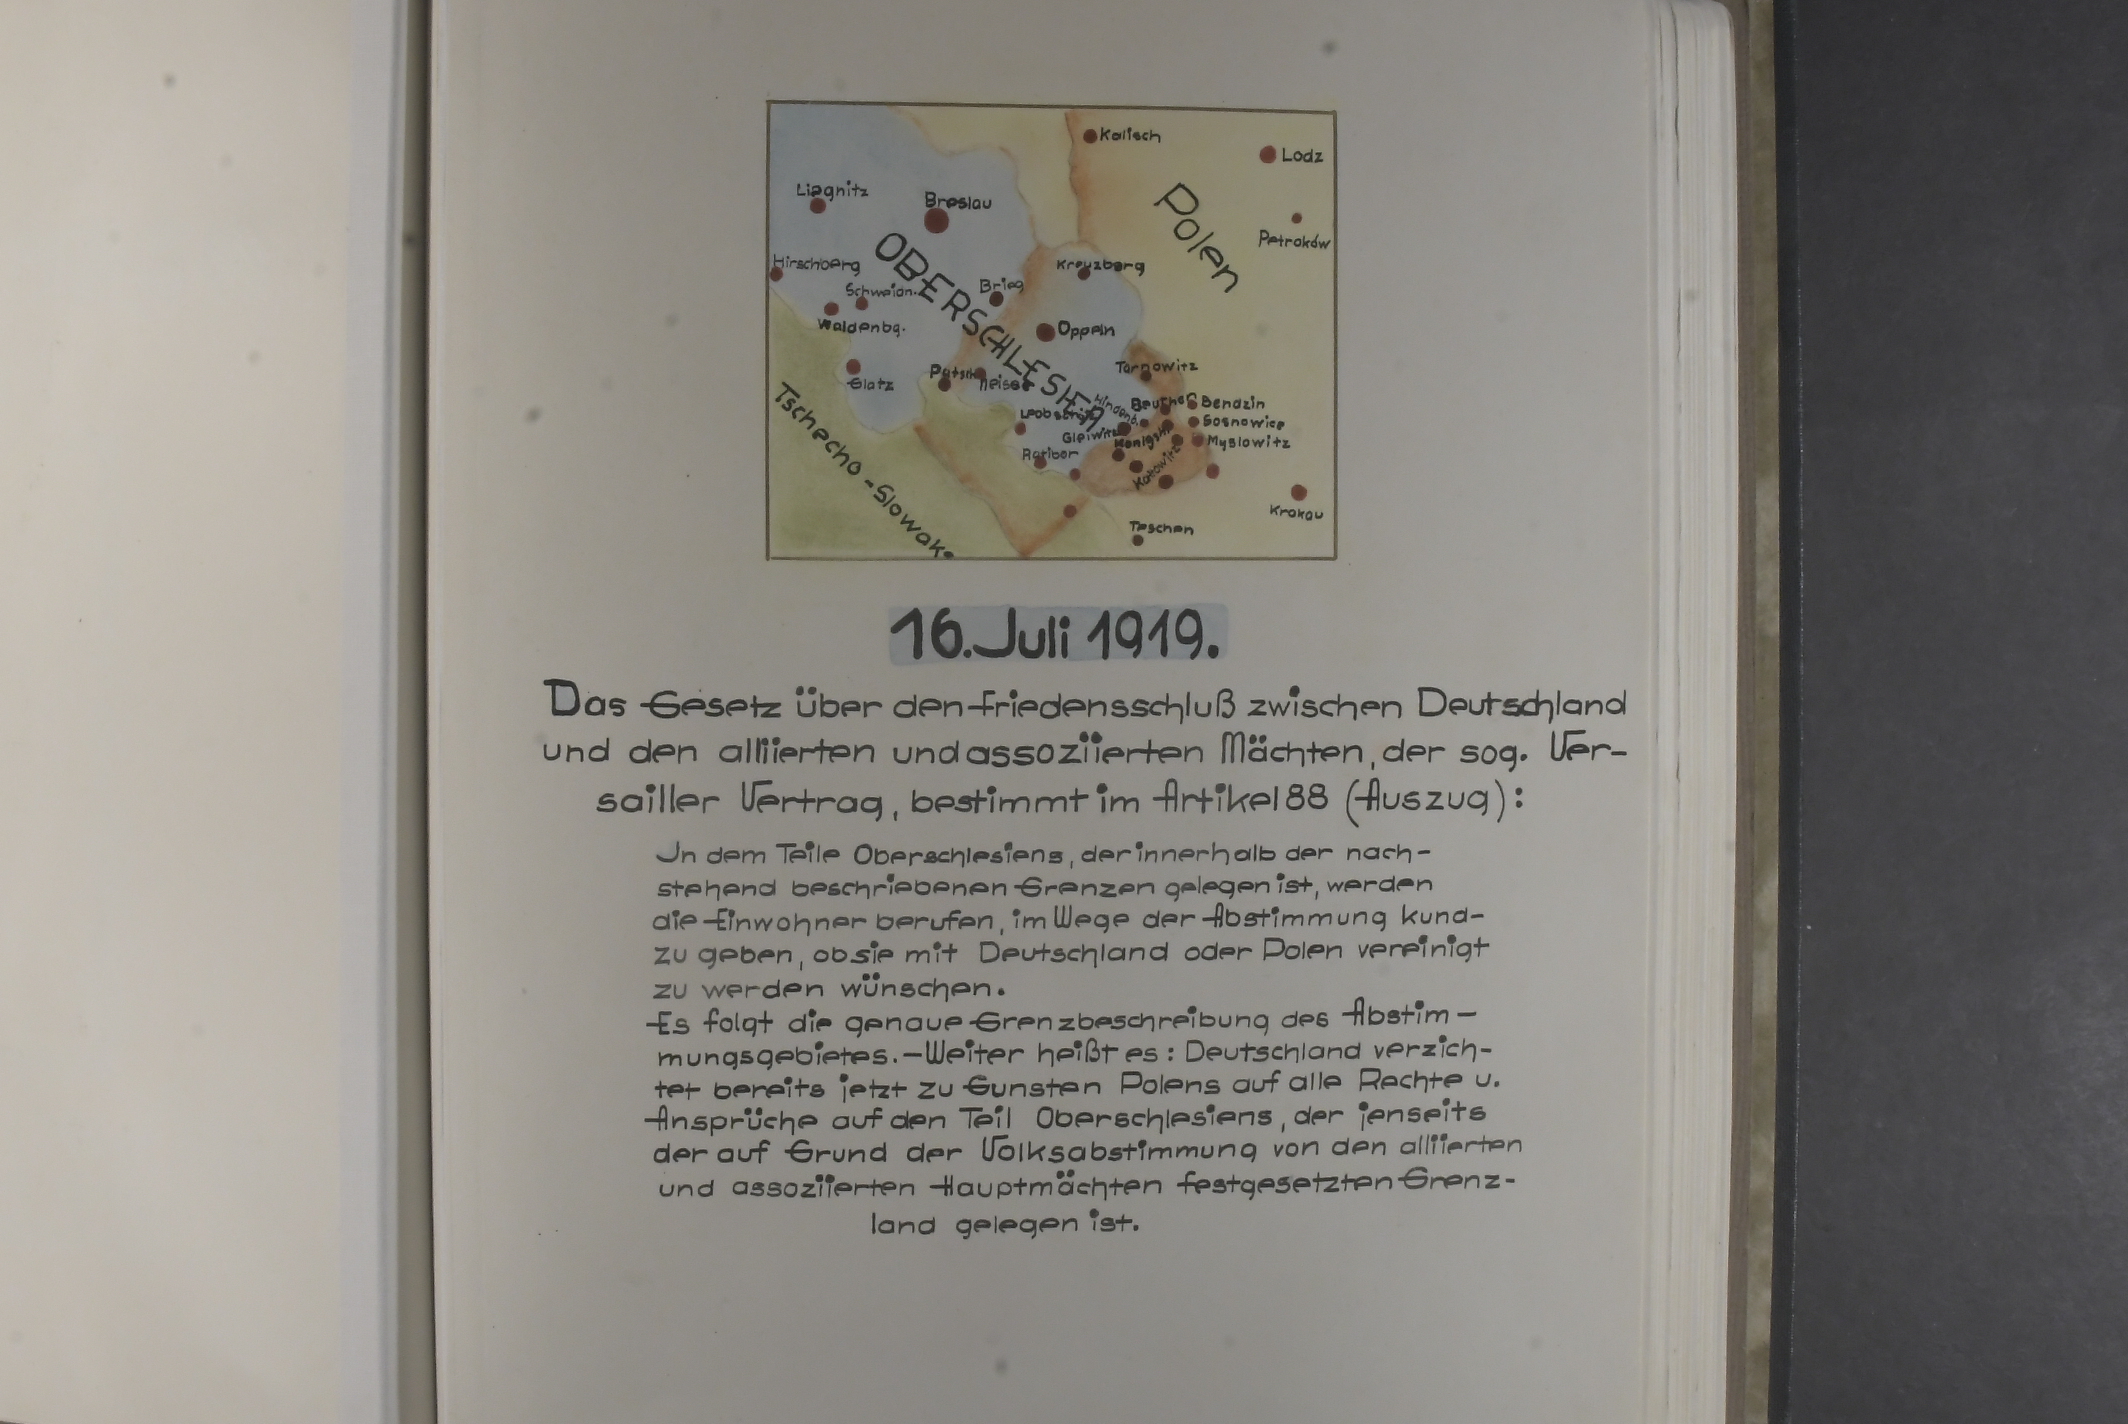 Kalisch
Lodz
Liegnitz
Breslau
Polen
Petroków
Hirschberg
Kreuzberg
OBERSCHLESIEN
Schweidn.
Brieg
Waldenbg.
Oppeln
Tarnowitz
Glatz
Patsch
Neisse
Hindenb.
Beuthen
Bendzin
Leobschütz
Sosnowice
Gleiwitz
Königsh.
Myslowitz
Tschecho-Slowak.
Ratibor
Katowitz
Krakau
Teschen
16. Juli 1919.
Das Gesetz über den Friedensschluß zwischen Deutschland
und den alliierten und assoziierten Mächten, der sog. Ver-
sailler Vertrag, bestimmt im Artikel 88 (Auszug):
In dem Teile Oberschlesiens, der innerhalb der nach-
stehend beschriebenen Grenzen gelegen ist, werden
die Einwohner berufen, im Wege der Abstimmung kund-
zu geben, ob sie mit Deutschland oder Polen vereinigt
zu werden wünschen.
Es folgt die genaue Grenzbeschreibung des Abstim-
mungsgebietes. - Weiter heißt es: Deutschland verzich-
tet bereits jetzt zu Gunsten Polens auf alle Rechte u.
Ansprüche auf den Teil Oberschlesiens, der jenseits
der auf Grund der Volksabstimmung von den alliierten
und assoziierten Hauptmächten festgesetzten Grenz-
land gelegen ist.